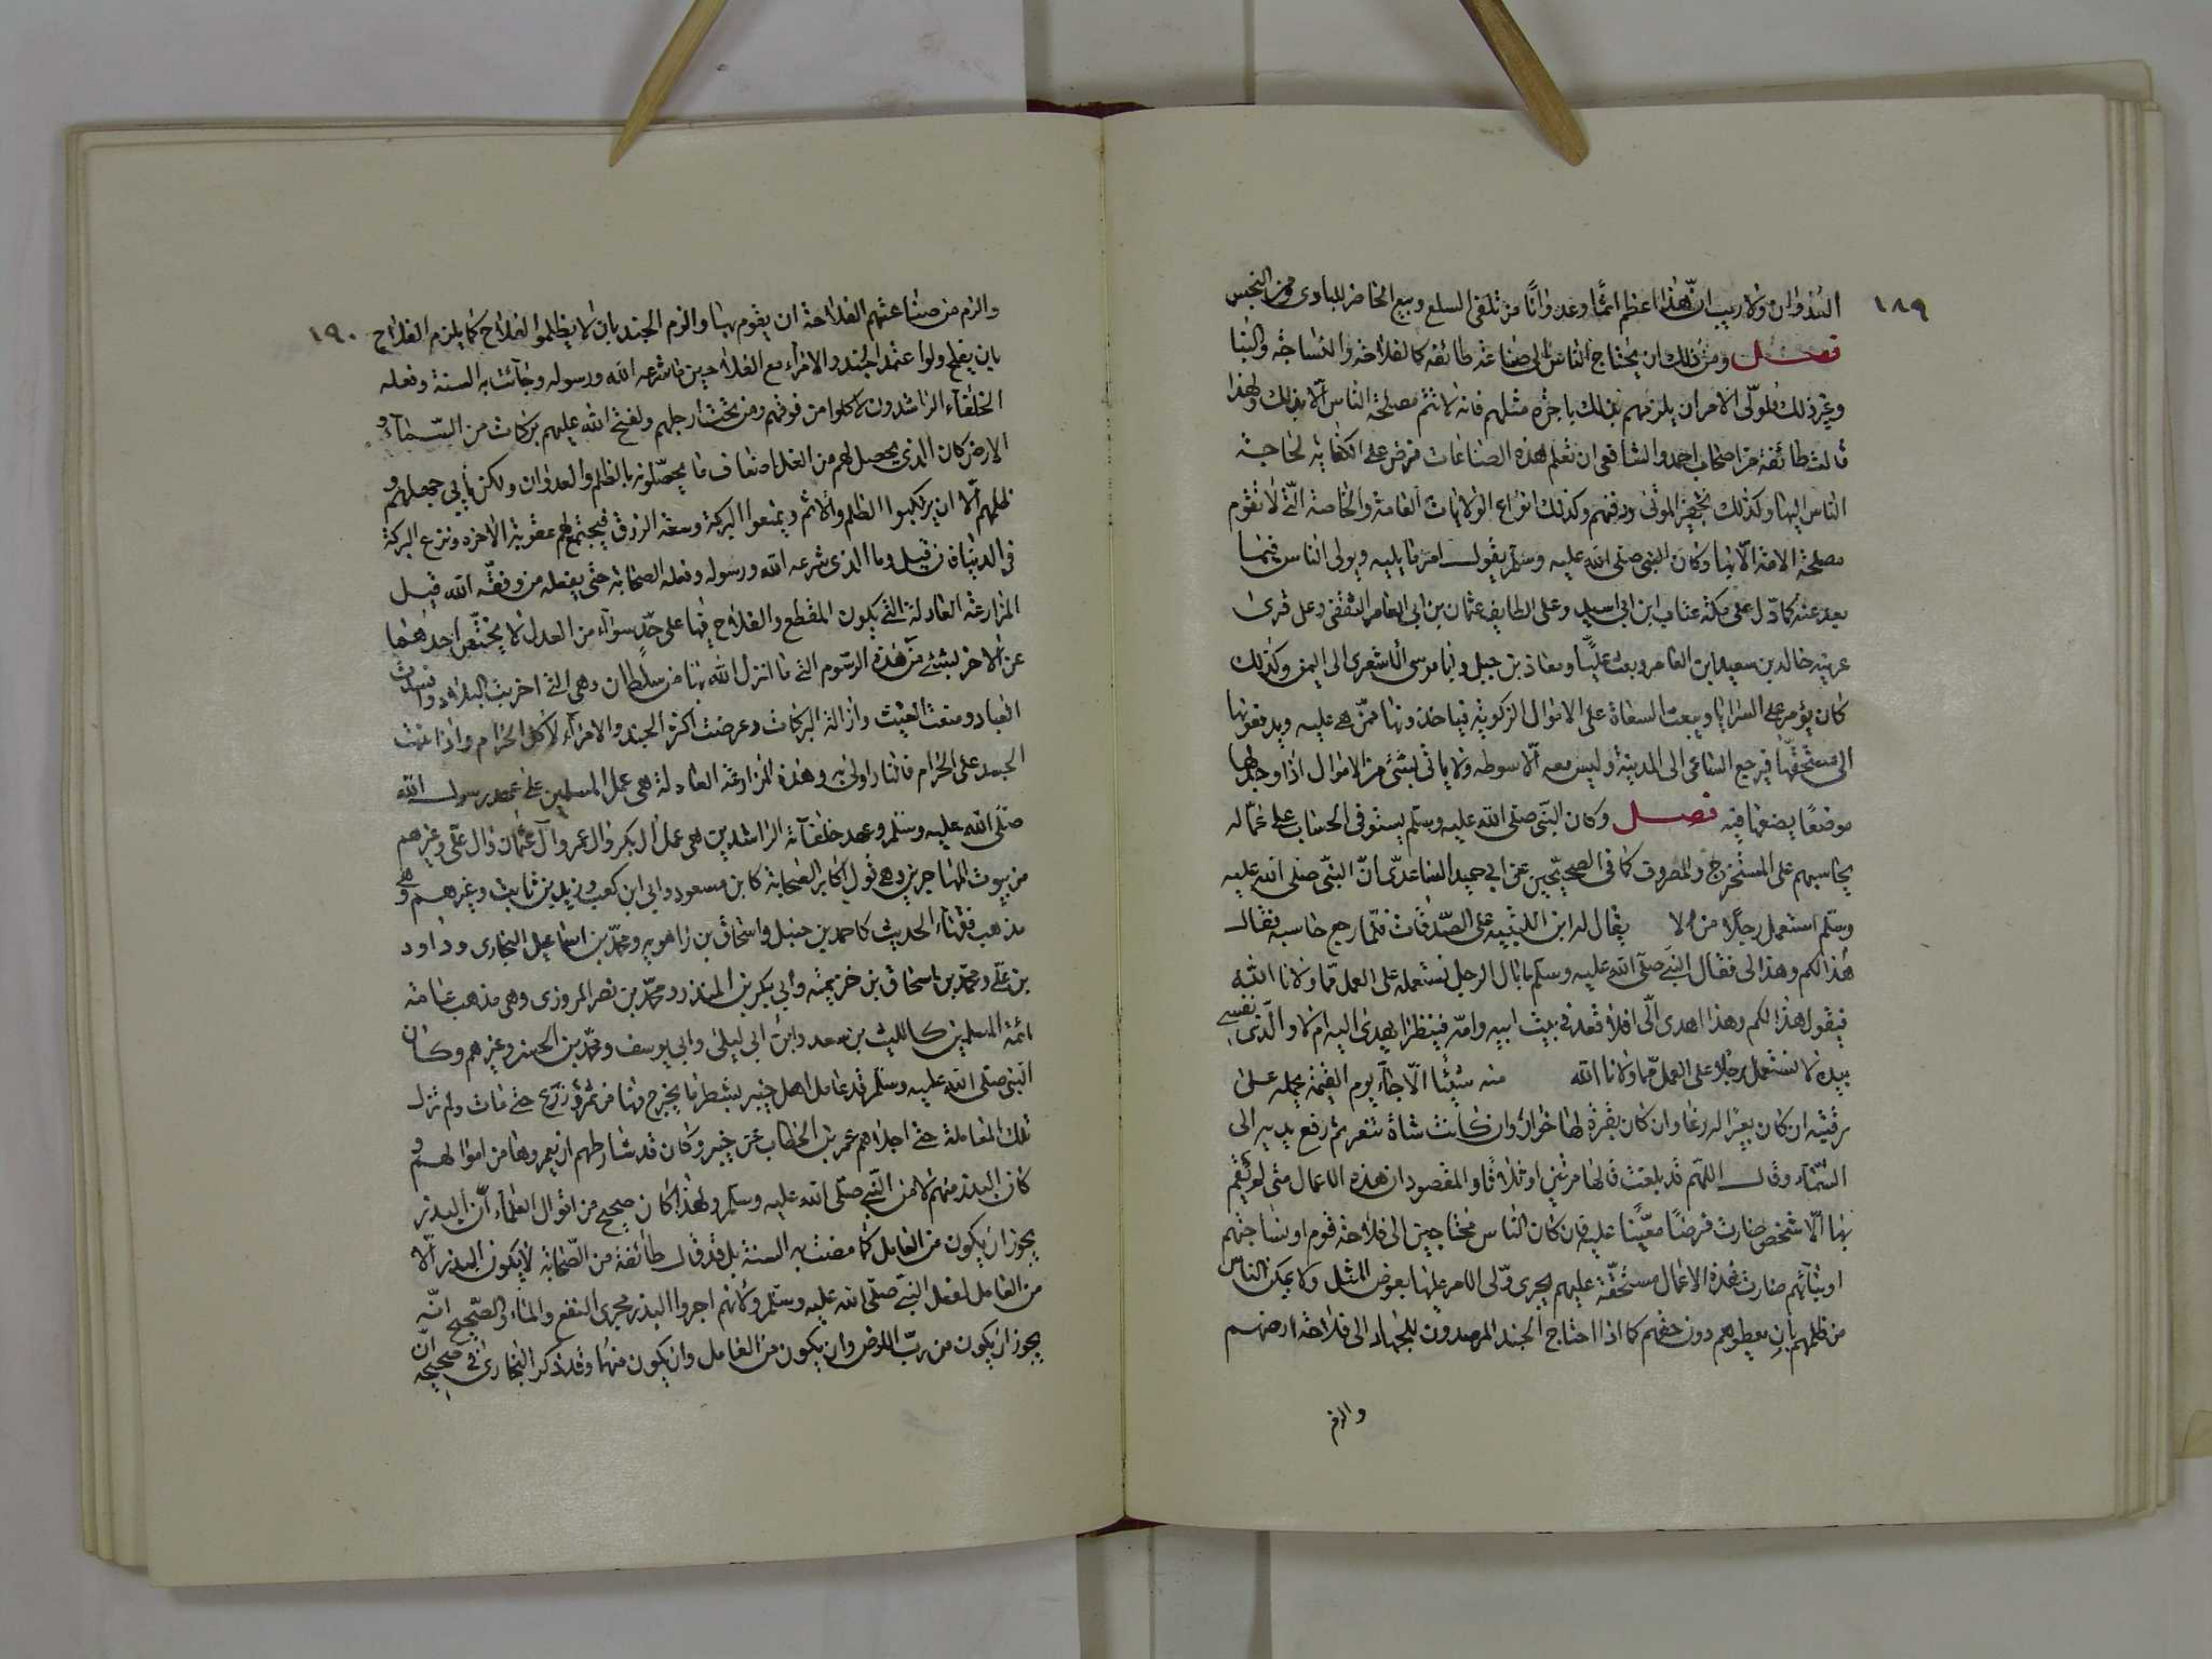 ١٨٩
العدوان ولا ريب ان هذا اعظم اثمًا وعدوانًا من تلقى السلع وبيع الحاضر للبادى ومن النجس
فصل ومن ذلك ان يحتاج الناس الى صناعة طائفة كالفلاحة والنساجة والبنا
وغير ذلك فلولّى الامر ان يلزمهم بذلك باجرة مثلهم فانه لا تتم مصلحة الناس الّا بذلك ولهذا
قالت طائفة من اصحاب احمد والشافعى ان تعلم هذه الصناعات فرض على الكفاية لحاجة
الناس اليها وكذلك تجهيز الموتى ودفنهم وكذلك انواع الولايات العامة والخاصة الّتى لا تقوم
مصلحة الامة الّا بها وكان النبى صلى الله عليه وسلم يقول امر ما يليه ويولى الناس فيما
بعد عنه كما ولّ على مكة عتاب ابن ابى اسيد وعلى الطايف عثمان بن ابى العاص الثقفى وعلى قرى
عرينه خالد بن سعيد ابن العاص وبعث عليًّا ومعاذ بن جبل وابا موسى الاشعرى الى اليمن وكذلك
كان يؤمر على السرايا ويبعث السعاة على الاموال الزكوية فياخذونها ممّن هى عليه ويدفعونها
الى مستحقّها فيرجع الساعى الى المدينة وليس معه الّا سوطه ولا ياتى بشئ من الاموال اذا وجد لها
موضعًا يضعها فيه فصل وكان النبّى صلى الله عليه وسلم يستوفى الحساب على عمّاله
يحاسبهم على المستخرج والمصروف كما فى الصحيحين عن ابي حميد الساعدىّ انّ النبّى صلى الله عليه
وسلّم استعمل رجلًا من الا يقال له ابن اللتبيه على الصّدقات فلمّا رجع حاسبه فقال
هذا لكم وهذا لى فقال النبى صلى الله عليه وسلم ما بال الرجل نستعمله على العمل ممّا ولانا الله
فيقول هذا لكم وهذا اهدى الّى افلا قعد فى بيت ابيه وامّه فينظر ايهدى اليه ام لا والّذى نفسى
بيده لا نستعمل رجلًا على العمل ممّا ولانا الله منه شيئًا الّا جاء يوم القيمة يحمله على
رقبته ان كان بعيرًا له رغا وان كان بقرة لها خوار وان كانت شاة تنعر ثم رفع يديه الى
السّماء وقال اللّهم قد بلغت قالها مرتين او ثلاثًا والمقصود ان هذه الاعمال متى لم يقم
بها الّا شخص صارت فرضًا معيّنا عليه فان كان الناس محتاجين الى فلاحة قوم او نساجتهم
او بنائهم صارت هذه الاعمال مستحقّة عليهم يجرى ولّى الامر عليها بعوض المثل ولا يمكن الناس
من ظلمهم بان يعطوهم دون حقهم كما اذا احتاج الجند المرصدون للجهاد الى فلاحة ارضهم
والزم
١٩٠
والزم من صناعتهم الفلاحة ان يقوم بها والزم الجند بان لا يظلموا الفلاح كما يلزم الفلاح
بان يفلح ولو اعتمد الجند والامراء مع الفلاحين ما شرعه الله ورسوله وجائت به السنة وفعله
الخلفآء الراشدون لاكلوا من فوقهم ومن تحت ارجلهم ولفتح الله عليهم بركات من السّماء و
الارض كان الذى يحصل لهم من الغل اضعاف ما يحصّلونه بالظلم والعدوان ولكن يأبي جهلهم و
ظلمهم الّا ان يركبوا الظلم والاثم ويمنعوا البركة وسعة الرزق فيجتمع لهم عقوبة الاخرة ونزع البركة
فى الدنيا فان قيل وما الذى شرعه الله ورسوله وفعله الصحابة حتى يفعله من وفقّه الله قيل
المزارعة العادلة التى يكون المقطع والفلاح فيها على حدّ سوآء من العدل لا يختصّ احدهما
عن الاخر بشئ من هذه الرسوم التى ما انزل الله بها من سلطان وهى التى اخربت البلاد وافسدت
العباد ومنعت الغيث وازالة البركات وعرضت اكثر الجند والامراء لاكل الحرام واذا نبت
الجسد على الحرام فالنار اولى به وهذه المزارعة العادلة هى عمل المسلمين على عهد رسول الله
صلّى الله عليه وسلّم وعهد خلفآئه الراشدين هى عمل ال بكر وال عمر وآل عثمان وال علّى وغيرهم
من بيوت المهاجرين وهى قول اكابر الصحابة كابن مسعود وابي ابن كعب وزيد بن ثابت وغيرهم وهى
مذهب فقهآء الحديث كاحمد بن حنبل واسحاق بن راهويه ومحمّد بن اسماعيل البخارى وداود
بن على ومحمّد بن اسحاق بن خزيمة وأبي بكر بن المنذر ومحمّد بن نصر المروزى وهى مذهب عامة
ائمة المسلمين كالليث بن سعد وابن ابى ليلى وابى يوسف ومحمّد بن الحسن وغيرهم وكان
النبى صلى الله عليه وسلّم قد عامل اهل خيبر بشطر ما يخرج منها من ثمر وزرع حتى مات ولم تزل
تلك المعاملة حتى اجلاهم عمر بن الخطاب عن خيبر وكان قد شارطهم ان يعمروها من اموالهم و
كان البذر منهم لا من النّبى صلّى الله عليه وسلم ولهذا كان صحيح من اقوال العلماء انّ البذر
يجوز ان يكون من العامل كما مضت به السنة بل قد قال طائفة من الصّحابة لا يكون البذر الّا
من العامل لفعل النبّى صلّى الله عليه وسلّم ولانهم اجروا البذر مجرى النفع والماء والصّحيح انّه
يجوز ان يكون من ربّ الارض وان يكون من العامل وان يكون منهما وقد ذكر البخارى فى صحيحه انّ